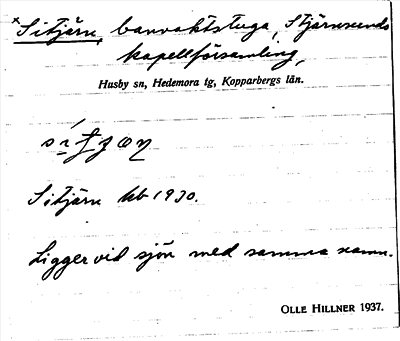 *Sitjärn, banvaktstuga, Stjärnsunds
kapellförsamling,
Husby sn, Hedemora tg, Kopparbergs län.
Sitjärn kb 1930.
Ligger vid sjön med samma namn.
OLLE HILLNER 1937.